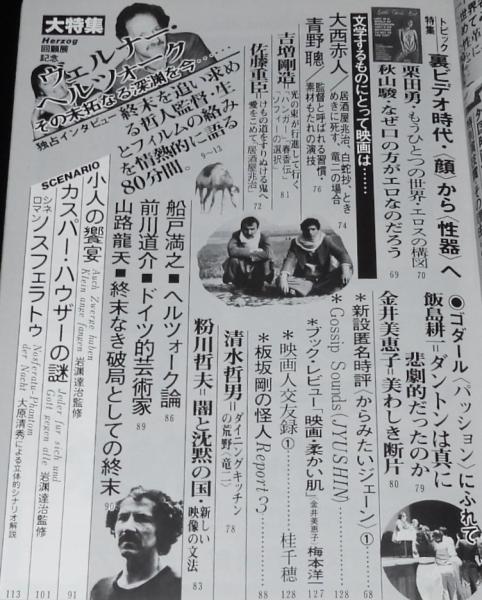 トピック
特集
裏ビデオ時代・〈顔〉から〈性器〉へ
栗田勇・もうひとつの世界・エロスの構図
70
秋山駿・なぜ口の方がエロなのだろう
69
●ゴダール〈パッション〉にふれて
飯島耕一=ダントンは真に
悲劇的だったのか
79
金井美恵子=美わしき断片
80
文学するものにとって映画は……
大西赤人
居酒屋兆治、白蛇抄、とき
めきに死す、竜二の場合
74
青野聰
監督と呼ばれる習慣・
素材もたれの演技
76
吉増剛造
光の束が行進して行く
「ハンガー」「春香伝」
「ソフィーの選択」
81
佐藤重臣
けもの道をすりぬける鬼へ
愛をこめて、居酒屋兆治
72
大特集
Herzog
回顧展
記念
ヴェルナー・
ヘルツォーク
その未拓なる深淵を今……
独占インタビュー
終末を追い求め
る哲人監督・生
とフィルムの絡み
を情熱的に語る
80分間。
9−13
*新設匿名時評〈からみたいジェーン〉①
68
*Gossip Sounds(JYUSHIN)
128
*ブック・レビュー「映画 柔かい肌」
金井美恵子
梅本洋一
127
*映画人交友録①
桂千穂
128
*板坂剛の怪人Report 3
88
清水哲男=ダイニングキッチン
の荒野〈竜二〉
78
粉川哲夫=闇と沈黙の国・新しい
映像の文法
83
船戸満之■ヘルツォーク論
86
前川道介■ドイツ的芸術家
89
山路龍天■終末なき破局としての終末
90
SCENARIO
小人の饗宴
Auch Zwerge haben
Klein ange fangen
岩淵達治監修
91
カスパー・ハウザーの謎
Jeder für sich und
Gott gegen alle
岩淵達治監修
101
シネ
ロマン
ノスフェラトゥ
Nosferatu-Phantom
der Nacht
大原清秀による立体的シナリオ解説
113